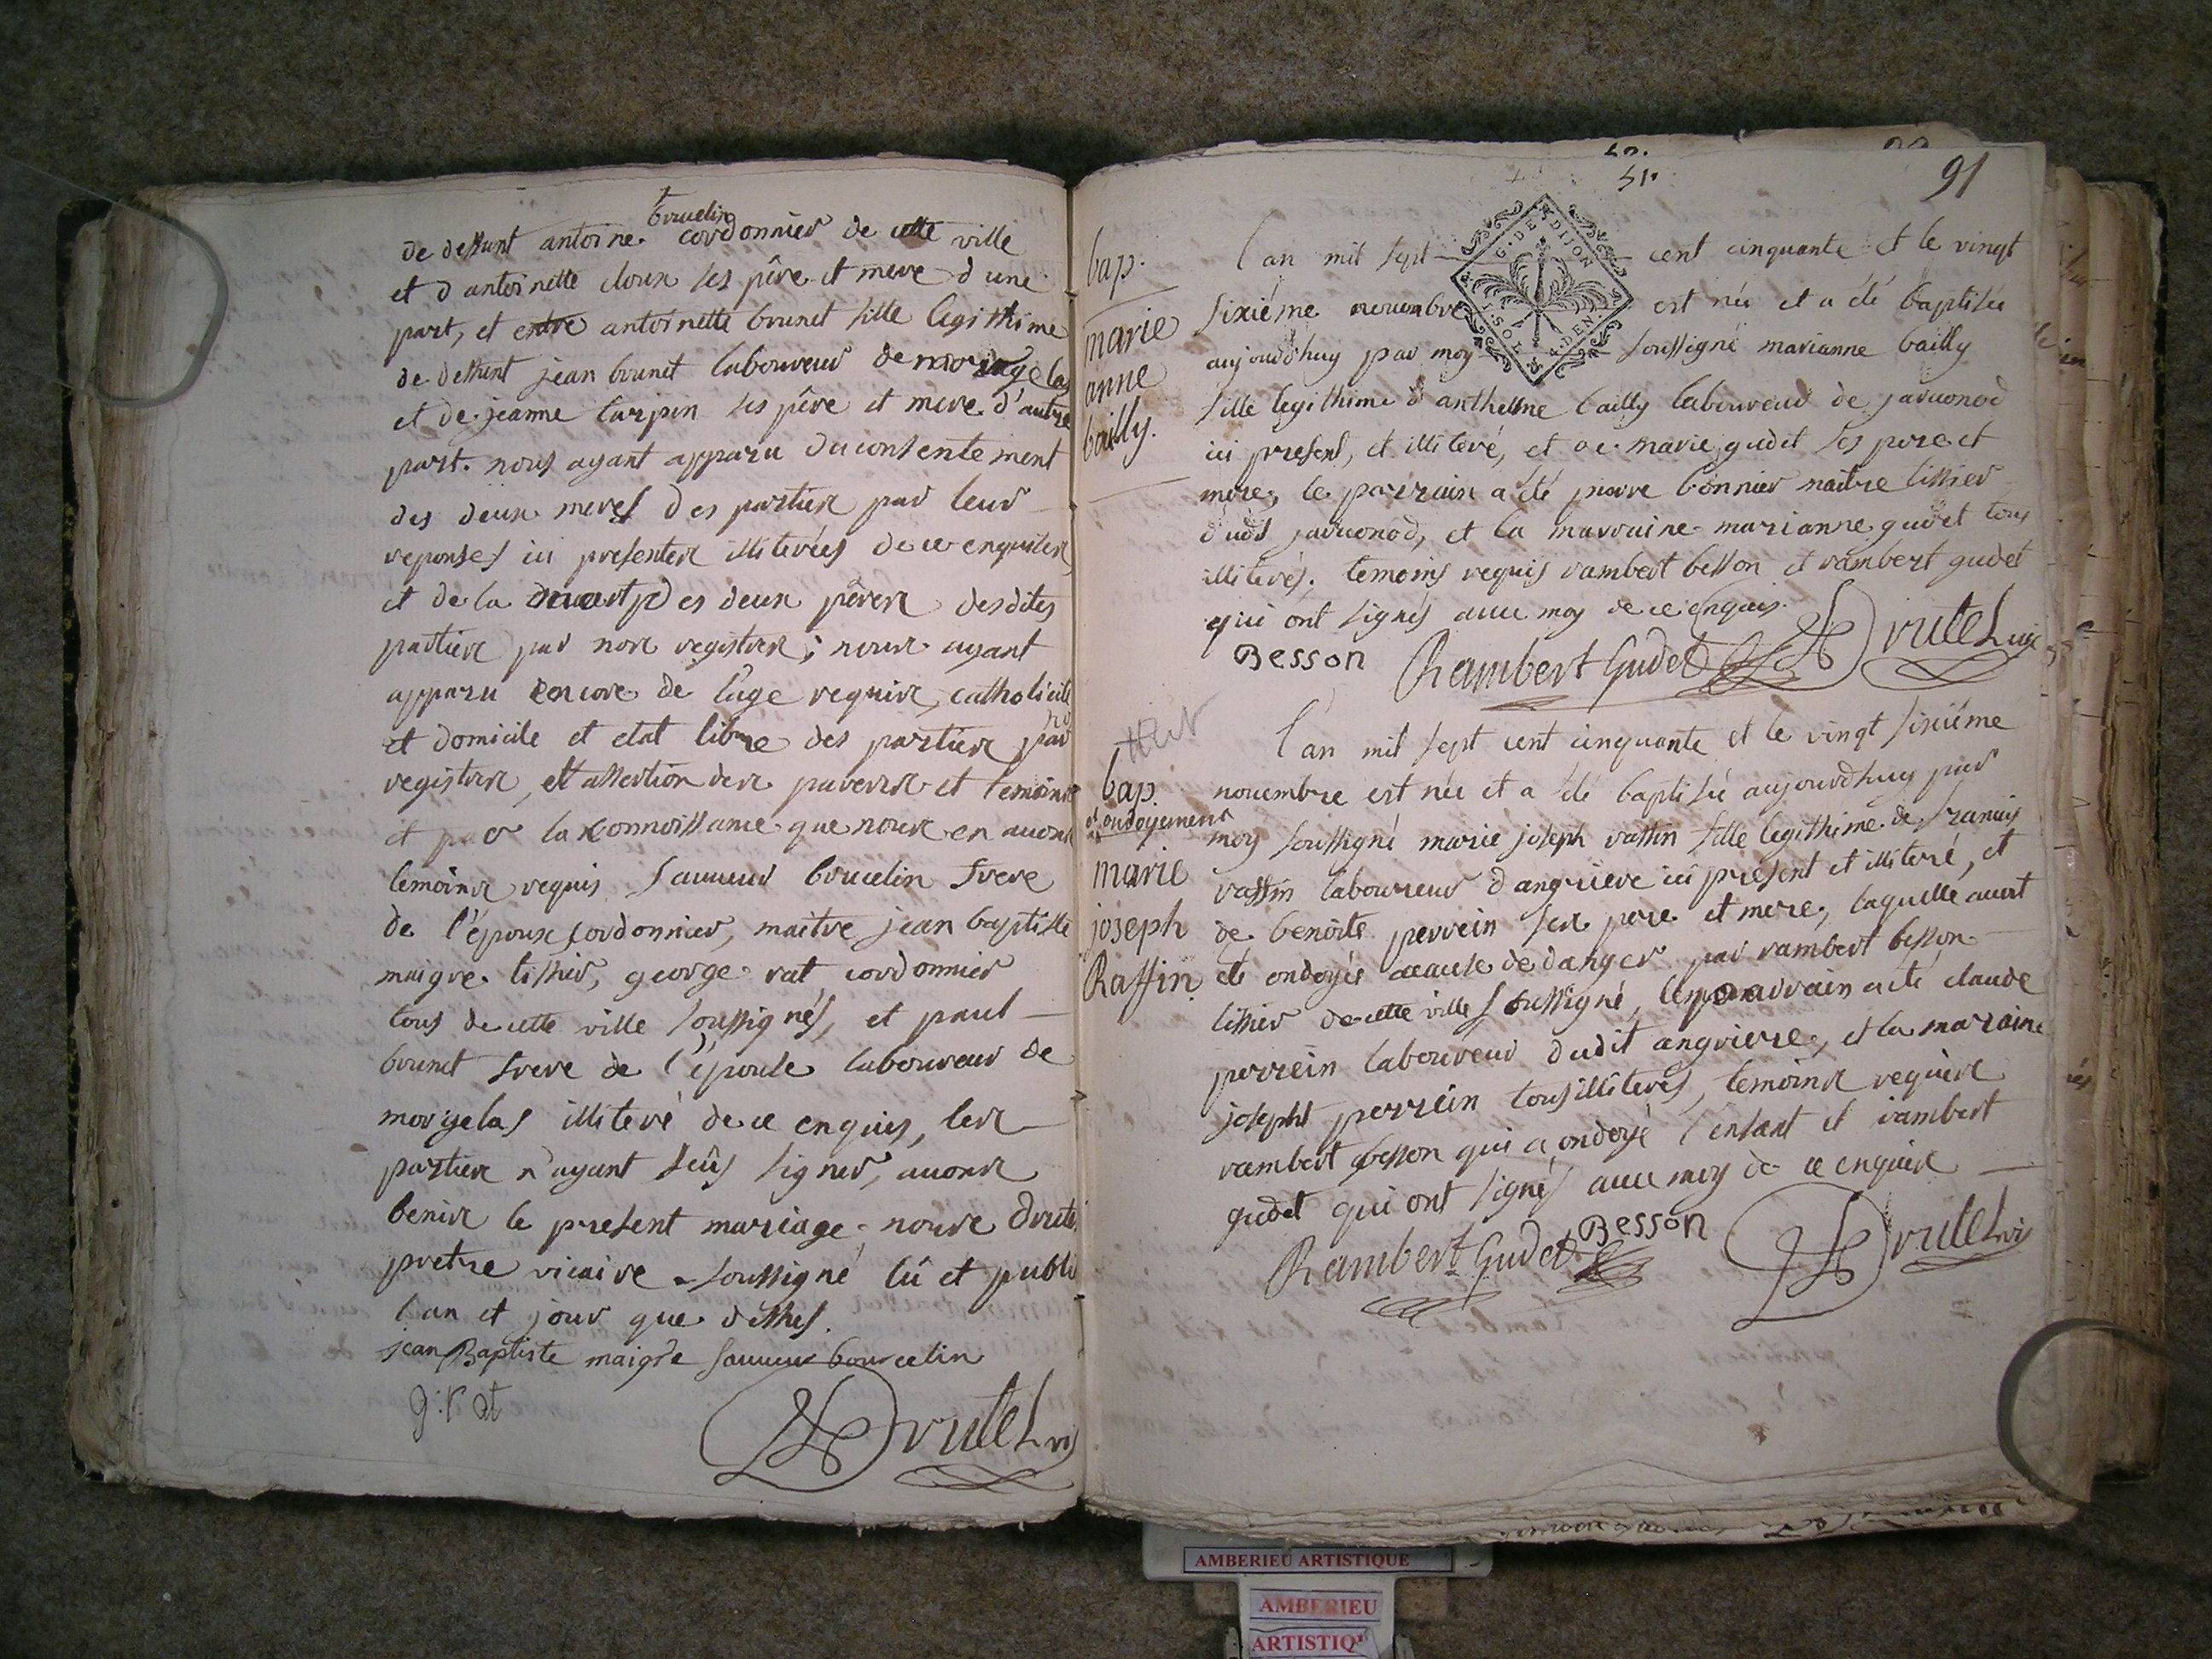 brucelin
de deffunt antoine cordonnier de cette ville
et d antoinette doux ses pêre et mere d une
part, et entre antoinette brunet fille legitthime
de deffunt jean brunet laboureur de morgelas
et de jeanne turpin ses pêre et mere d'autre
part. nous ayant apparu du consentement
des deux meres des partier par leur
reponses ici presenter illiterées de ce enquiser
et de la des deux pêrer desdites
partier par nor register; nour ayant
apparu encore de l'âge requir, catholicité
et domicile et etat libre des partier par no
register, et assertion der parerer et temoinr
et par la connoissance que nour en avonr
temoinr requis sauveur brucelin frere
de l'époux cordonnier, maitre jean baptiste
maigre tissier, george rat cordonnier
tous de cette ville soussignés, et paul
brunet frere de l'épouse laboureur de
morgelas illiteré de ce enquis, ler
partier n'ayant sçûs signer, avonr
benir le present mariage, nour drutel
pretre vicaire soussigné lû et publié
l an et jour que dessus.
jean Baptiste maigre sauveur bourcelin
g: rat
Drutel vic
91
51.
G. DE DIJON
bap.
marie
anne
bailly.
l an mil sept cent cinquante et le vingt
sixiéme novembre est née et a été baptisée
aujourd'huy par moy soussigné marianne bailly
fille legitthime d'anthelme bailly laboureur de javornod
ici present, et illiteré, et de marie gudet ses pere et
mere, le parrain a été pierre bonnier maitre tissier
dudt javornod, et la marraine marianne gudet tous
illiterés. temoins requis rambert besson et rambert gudet
qui ont signés avec moy de ce enquis.
Besson Rambert Gudet Drutel vic
bap.
et ondoyement
marie
joseph
Raffin
l'an mil sept cent cinquante et le vingt sixiéme
novembre est née et a été baptisée aujourdhuy par
moy soussigné marie joseph raffin fille legitthime de francois
raffin laboureur d'angriere ici present et illiteré, et
de benoite perrein ser pere et mere, laquelle avoit
été ondoyée acause de danger par rambert besson
tissier de cette ville soussigné, le parrain a été claude
perrein laboureur dudit angriere, et la maraine
josepht perrein tous illiterés, temoinr requier
rambert besson qui a ondoyé l'enfant et rambert
gudet qui ont signés avec moy de ce enquier
Rambert Gudet Besson Drutel vic
AMBERIEU ARTISTIQUE
AMBERIEU
ARTISTIQ